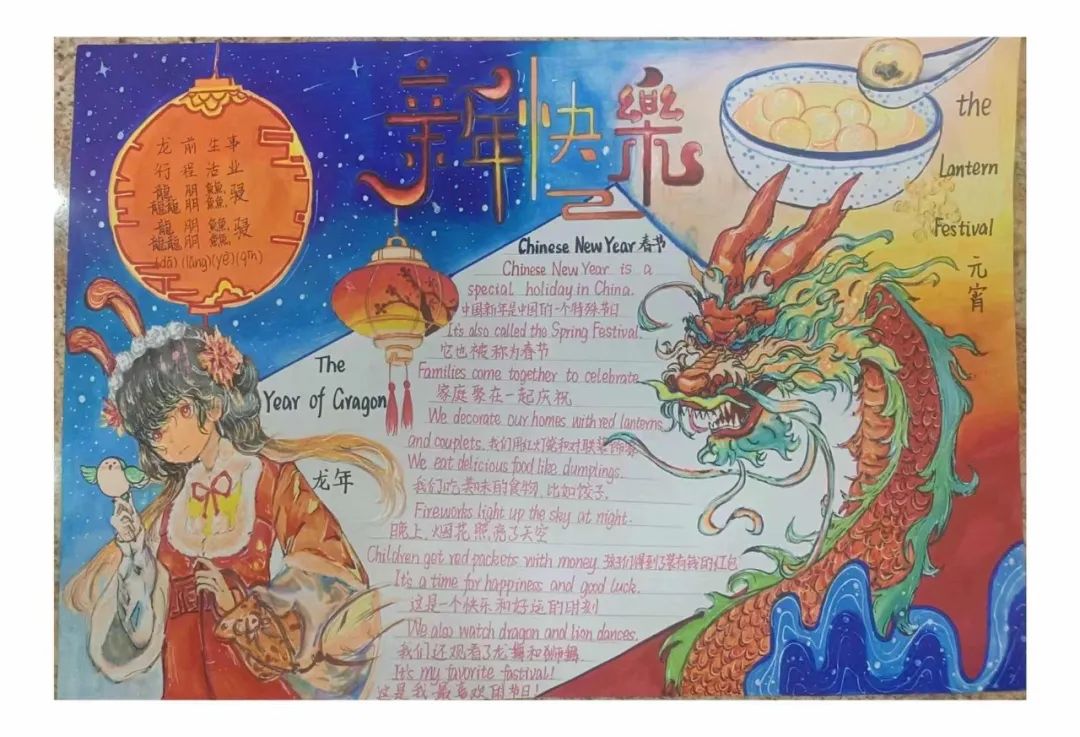 新年快樂
龙 前 生 事
行 程 活 业
龘 朤 䲜 骎
龘 朤 䲜 骎
(dá) (lǎng) (yè) (qīn)
the
Lantern
Festival
元宵
The
Year of Cragon
龙年
Chinese New Year 春节
Chinese New Year is a
special holiday in China.
中国新年是中国的一个特殊节日
It's also called the Spring Festival.
它也被称为春节
Families come together to celebrate
家庭聚在一起庆祝
We decorate our homes with red lanterns
and couplets. 我们用红灯笼和对联装饰家
We eat delicious food like dumplings.
我们吃美味的食物,比如饺子.
Fireworks light up the sky at night.
晚上,烟花照亮了天空
Children get red packets with money. 孩子们得到了装有钱的红包
It's a time for happiness and good luck.
这是一个快乐和好运的时刻
We also watch dragon and lion dances.
我们还观看了龙舞和狮舞.
It's my favorite fastival!
这是我最喜欢的节日!